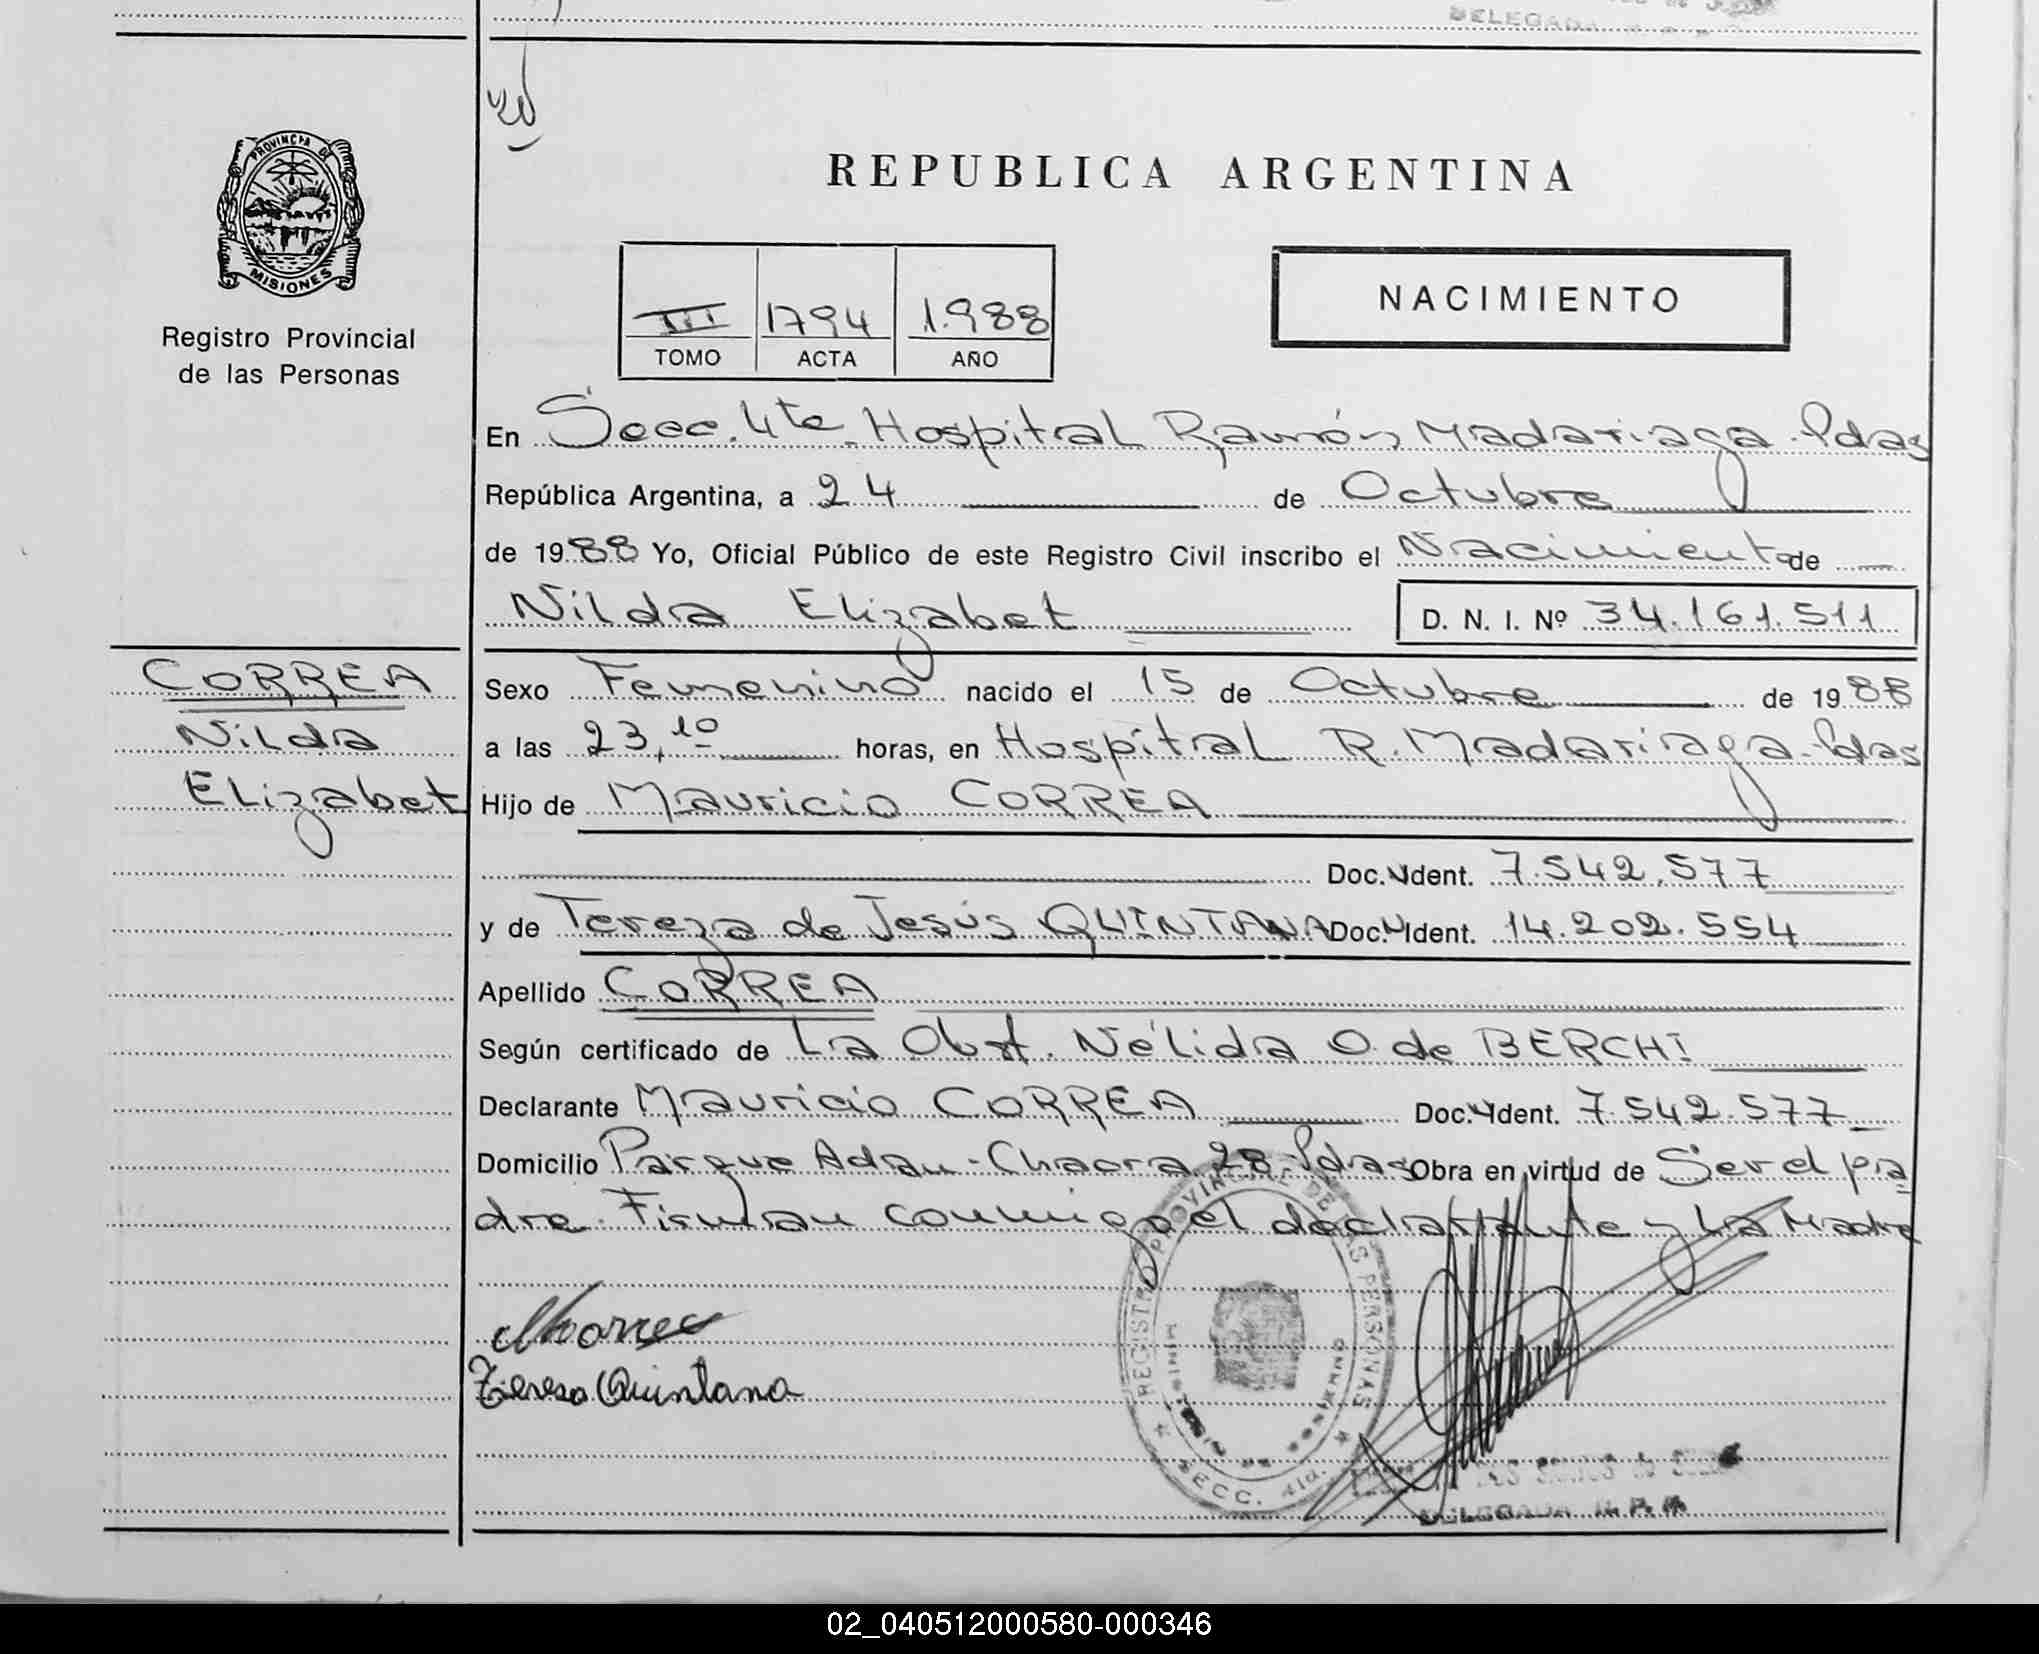 DELEGADA
REPUBLICA ARGENTINA
PROVINCIA DE
MISIONES
Registro Provincial
de las Personas
III 1794 1.988
TOMO ACTA AÑO
NACIMIENTO
En Secc. 4ta. Hospital Ramón Madariaga - Pdas
República Argentina, a 24 de Octubre
de 1988 Yo, Oficial Público de este Registro Civil inscribo el Nacimiento de
Nilda Elizabet D. N. I. Nº 34.161.511
CORREA
Nilda
Elizabet
Sexo Femenino nacido el 15 de Octubre de 1988
a las 23,10 horas, en Hospital R. Madariaga - Pdas
Hijo de Mauricio CORREA
Doc. Ident. 7.542.577
y de Tereza de Jesús QUINTANA Doc. Ident. 14.202.554
Apellido CORREA
Según certificado de La Obst. Nélida O. de BERCHI
Declarante Mauricio CORREA Doc. Ident. 7.542.577
Domicilio Parque Adam - Chacra 28 - Pdas Obra en virtud de Ser el pa
dre. Firman conmigo el declarante y La Madre
Tereza Quintana
REGISTRO PROVINCIAL DE LAS PERSONAS
SECC. 4ta.
DELEGADA R. P. P.
02_040512000580-000346